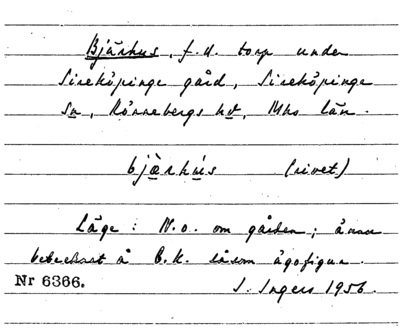 Bjärhus, f.d. torp under
Sireköpinge gård, Sireköpinge
sn, Rönnebergs hd, Mhs län.
bjärhús (rivet)
Läge: N.o. om gården; ännu
betecknat å E.K. såsom ägofigur.
Nr 6366.
I. Ingers 1956.